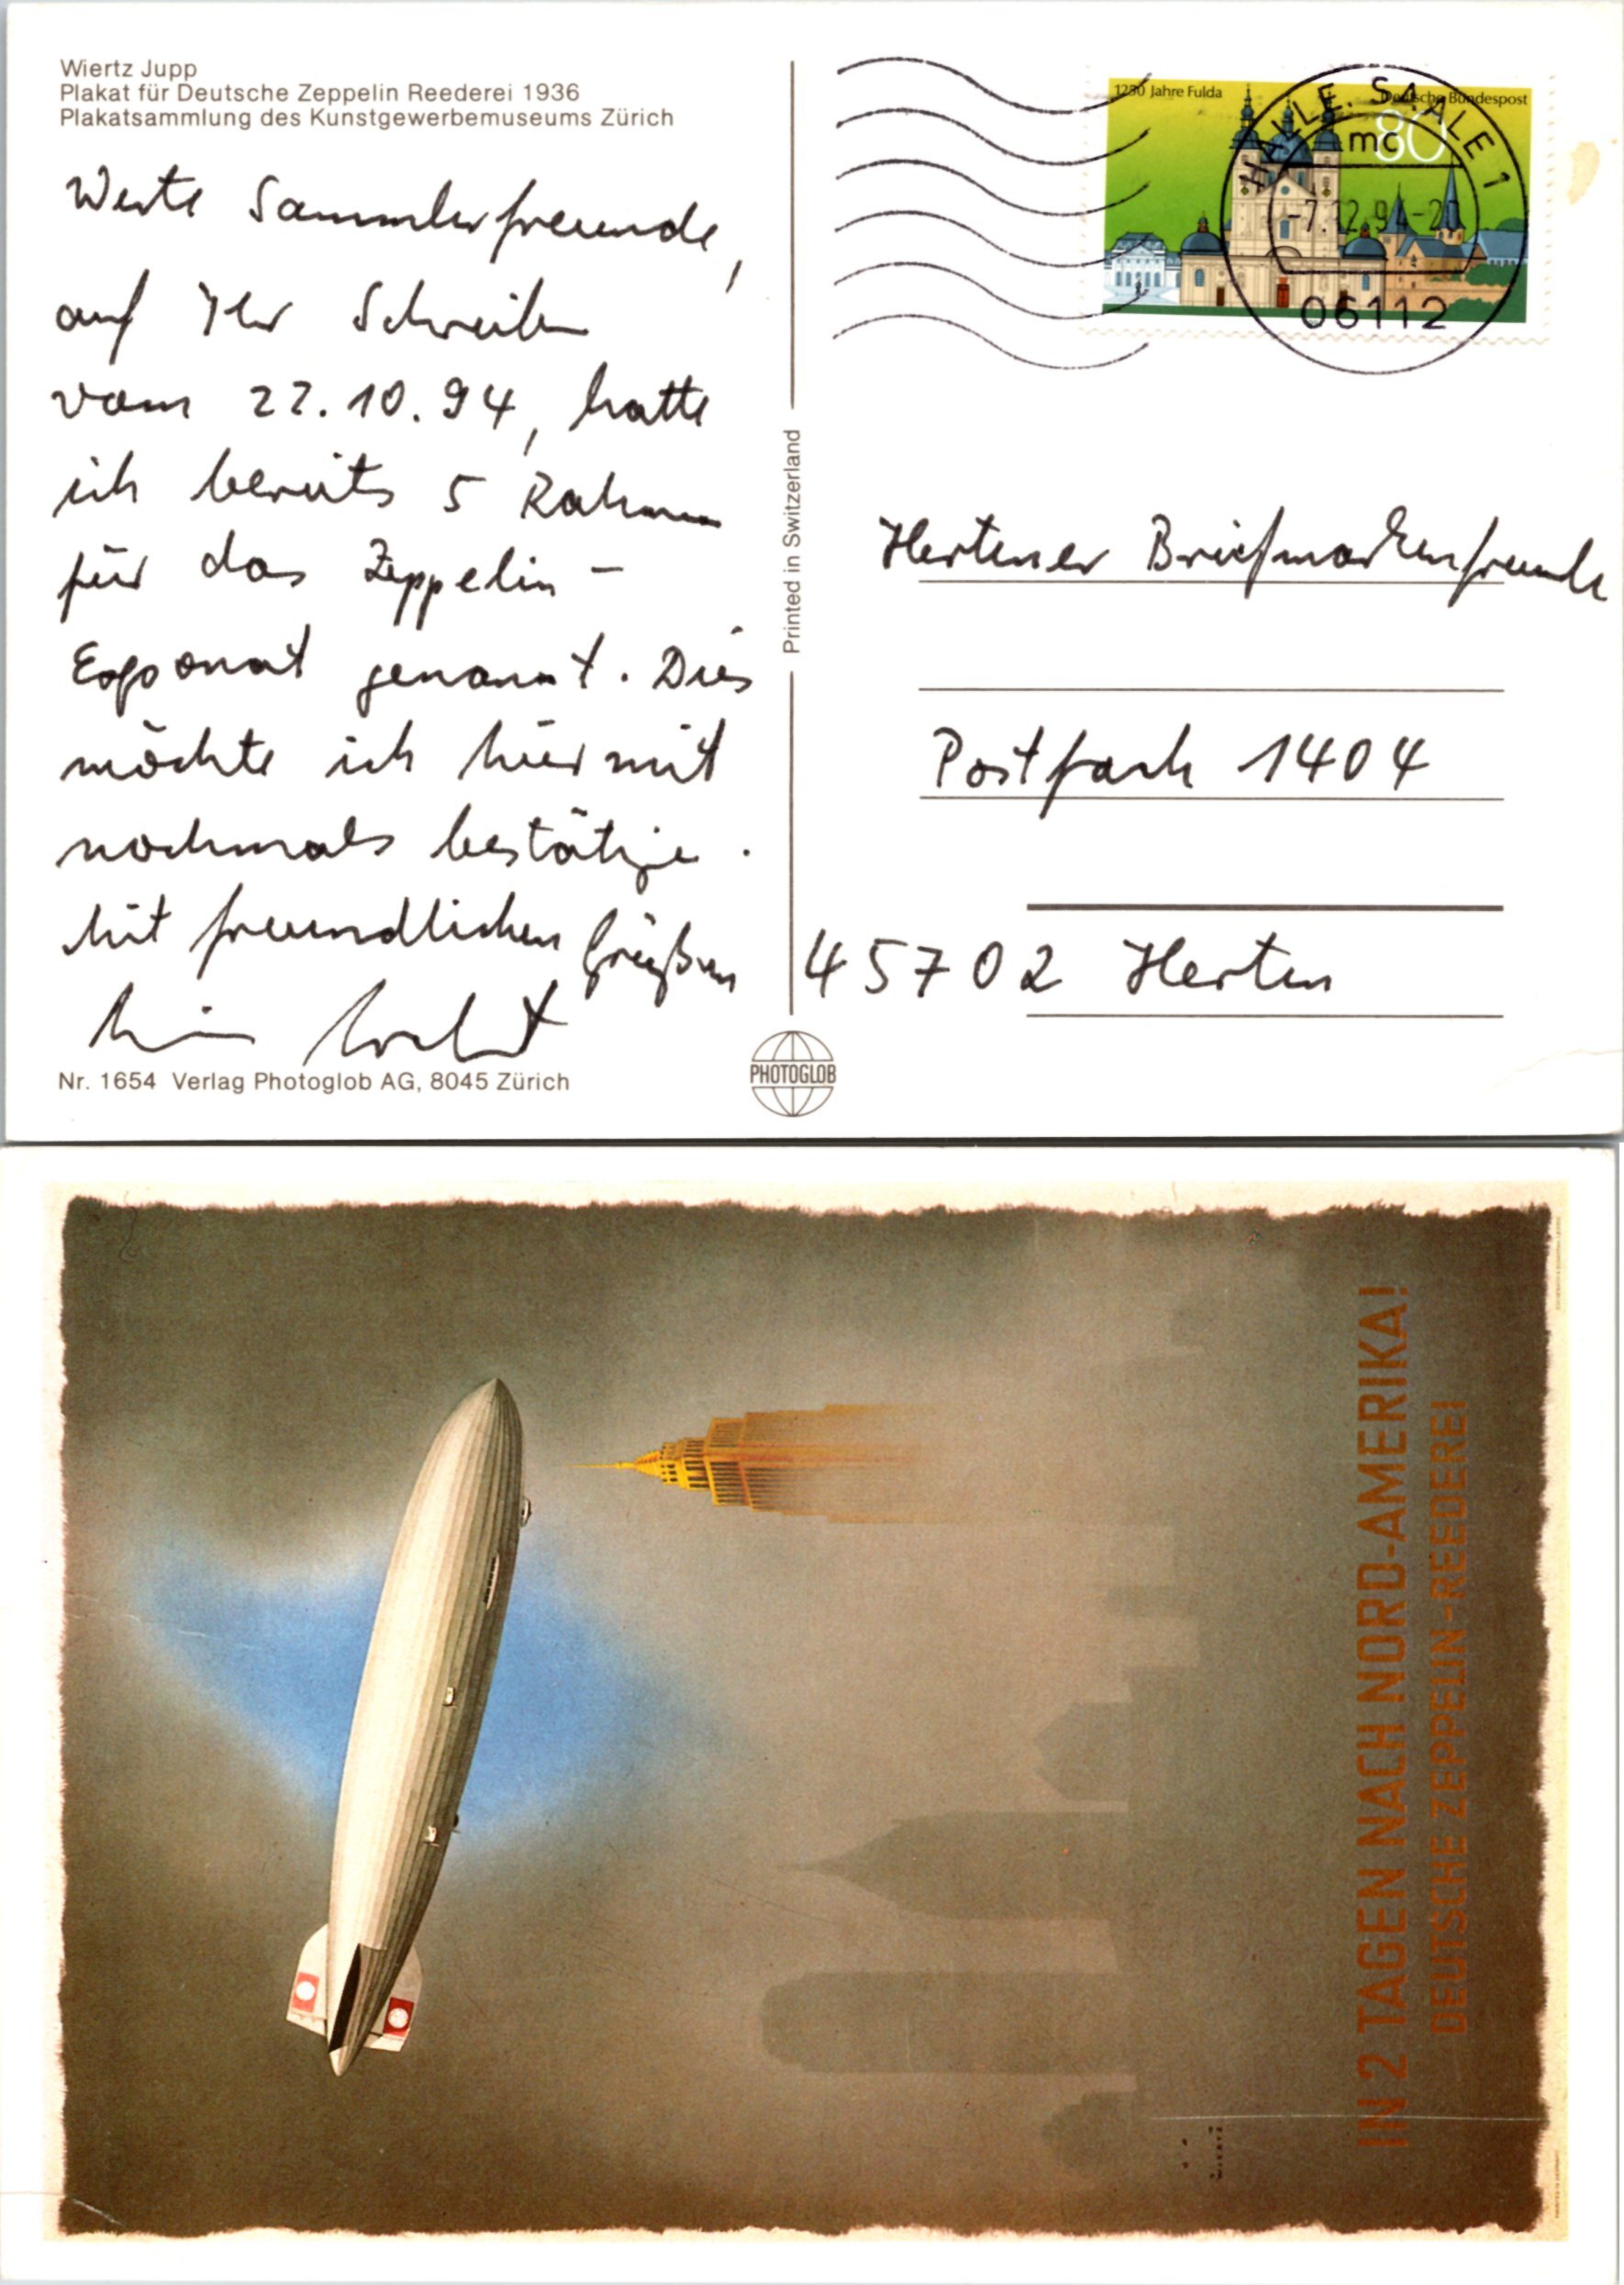 Wiertz Jupp
Plakat für Deutsche Zeppelin Reederei 1936
Plakatsammlung des Kunstgewerbemuseums Zürich
Werte Sammlerfreunde,
auf Ihr Schreiben
vom 22.10.94, hatte
ich bereits 5 Rahmen
für das Zeppelin-
Exponat genannt. Dies
möchte ich hiermit
nochmals bestätigen.
Mit freundlichen Grüßen
Nr. 1654 Verlag Photoglob AG, 8045 Zürich
Printed in Switzerland
PHOTOGLOB
1250 Jahre Fulda
Deutsche Bundespost
80
HALLE, SAALE 1
mc
-7.12.94-2
06112
Hertener Briefmarkenfreunde
Postfach 1404
45702 Herten
IN 2 TAGEN NACH NORD-AMERIKA!
DEUTSCHE ZEPPELIN-REEDEREI
WIERTZ